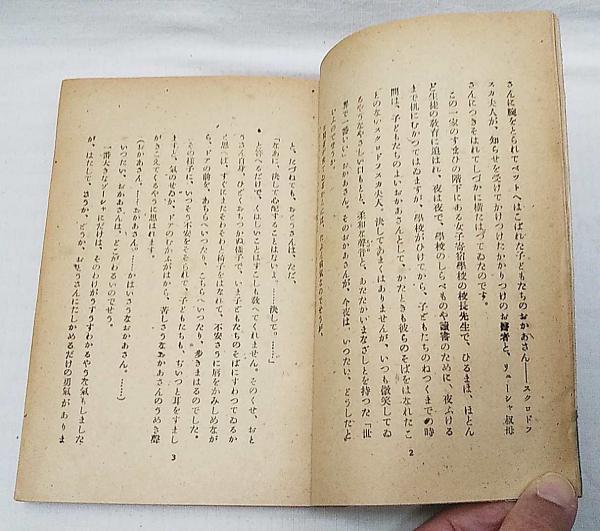 さんに腕をとられてベットへはこばれた子どもたちのおかあさん――スクロドフ
スカ夫人が、知らせを受けてかけつけたかかりつけのお醫者と、リューシャ叔母
さんにつきそはれてしづかに橫たはつてゐたのです。
この一家のすまひの階下にある女子寄宿學校の校長先生で、ひるまは、ほとん
ど生徒の敎育に追はれ、夜は夜で、學校のしらべものや讀書のために、夜ふける
まで机にむかつてはゐますが、學校がひけてから、子どもたちのねつくまでの時
間は、子どもたちのよいおかあさんとして、かたときも彼らのそばをはなれたこ
とのないスクロドフスカ夫人、決してあまくはありませんが、いつも微笑してゐ
るやうなやさしい口もと、柔和な聲音と、あたたかいまなざしとを持つた「世
界で一番いい」おかあさん、そのおかあさんが、今夜は、いつたい、どうしたと
いふのでせうか。
2
と、たづねても、おとうさんは、ただ、
「なあに、決して心配することはないよ。……決して。……」
と答へるだけで、くはしいことはすこしも敎へてくれません。そのくせ、おと
うさん自身、ひどくおちつかぬ樣子で、いま子どもたちのそばにすわつてゐるか
と思へば、すぐにまたそわそわと椅子をはなれて、不安さうに肩をかみしめなが
ら、ドアの前を、あちらへいつたり、こちらへいつたり、步きまはるのでした。
その樣子に、いつそう不安をそそられて、子どもたちも、ぢいつと耳をすまし
ますと、氣のせゐか、ドアのむかふがはから、苦しさうなおかあさんのうめき聲
がきこえてくるやうに思はれます。
（おかあさん。……おかあさん。……かはいさうなおかあさん。……）
いつたい、おかあさんは、どこがわるいのでせう。
一番大きなゾーシャにだけは、そのわけがうすうすわかるやうな氣もしました
が、はたして、さうか、どうか、おとうさんにたしかめるだけの勇氣がありま
3